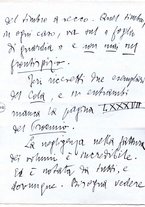 del timbro a secco. Quel timbro,
in ogni caso, va sul "foglio
di guardia" e non mai sul
frontespizio.
Ieri ricevetti due esemplari
del Cola, e in entrambi
manca la pagina LXXXVIII
del Proemio.
La negligenza nella fattura
dei volumi è incredibile.
Ed è notata da tutti, e
dovunque. Bisogna vedere